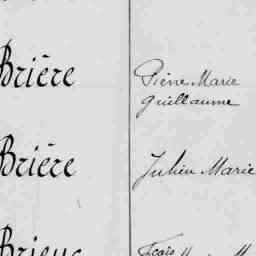 Brière Pierre Marie
Guillaume
Brière Julien Marie